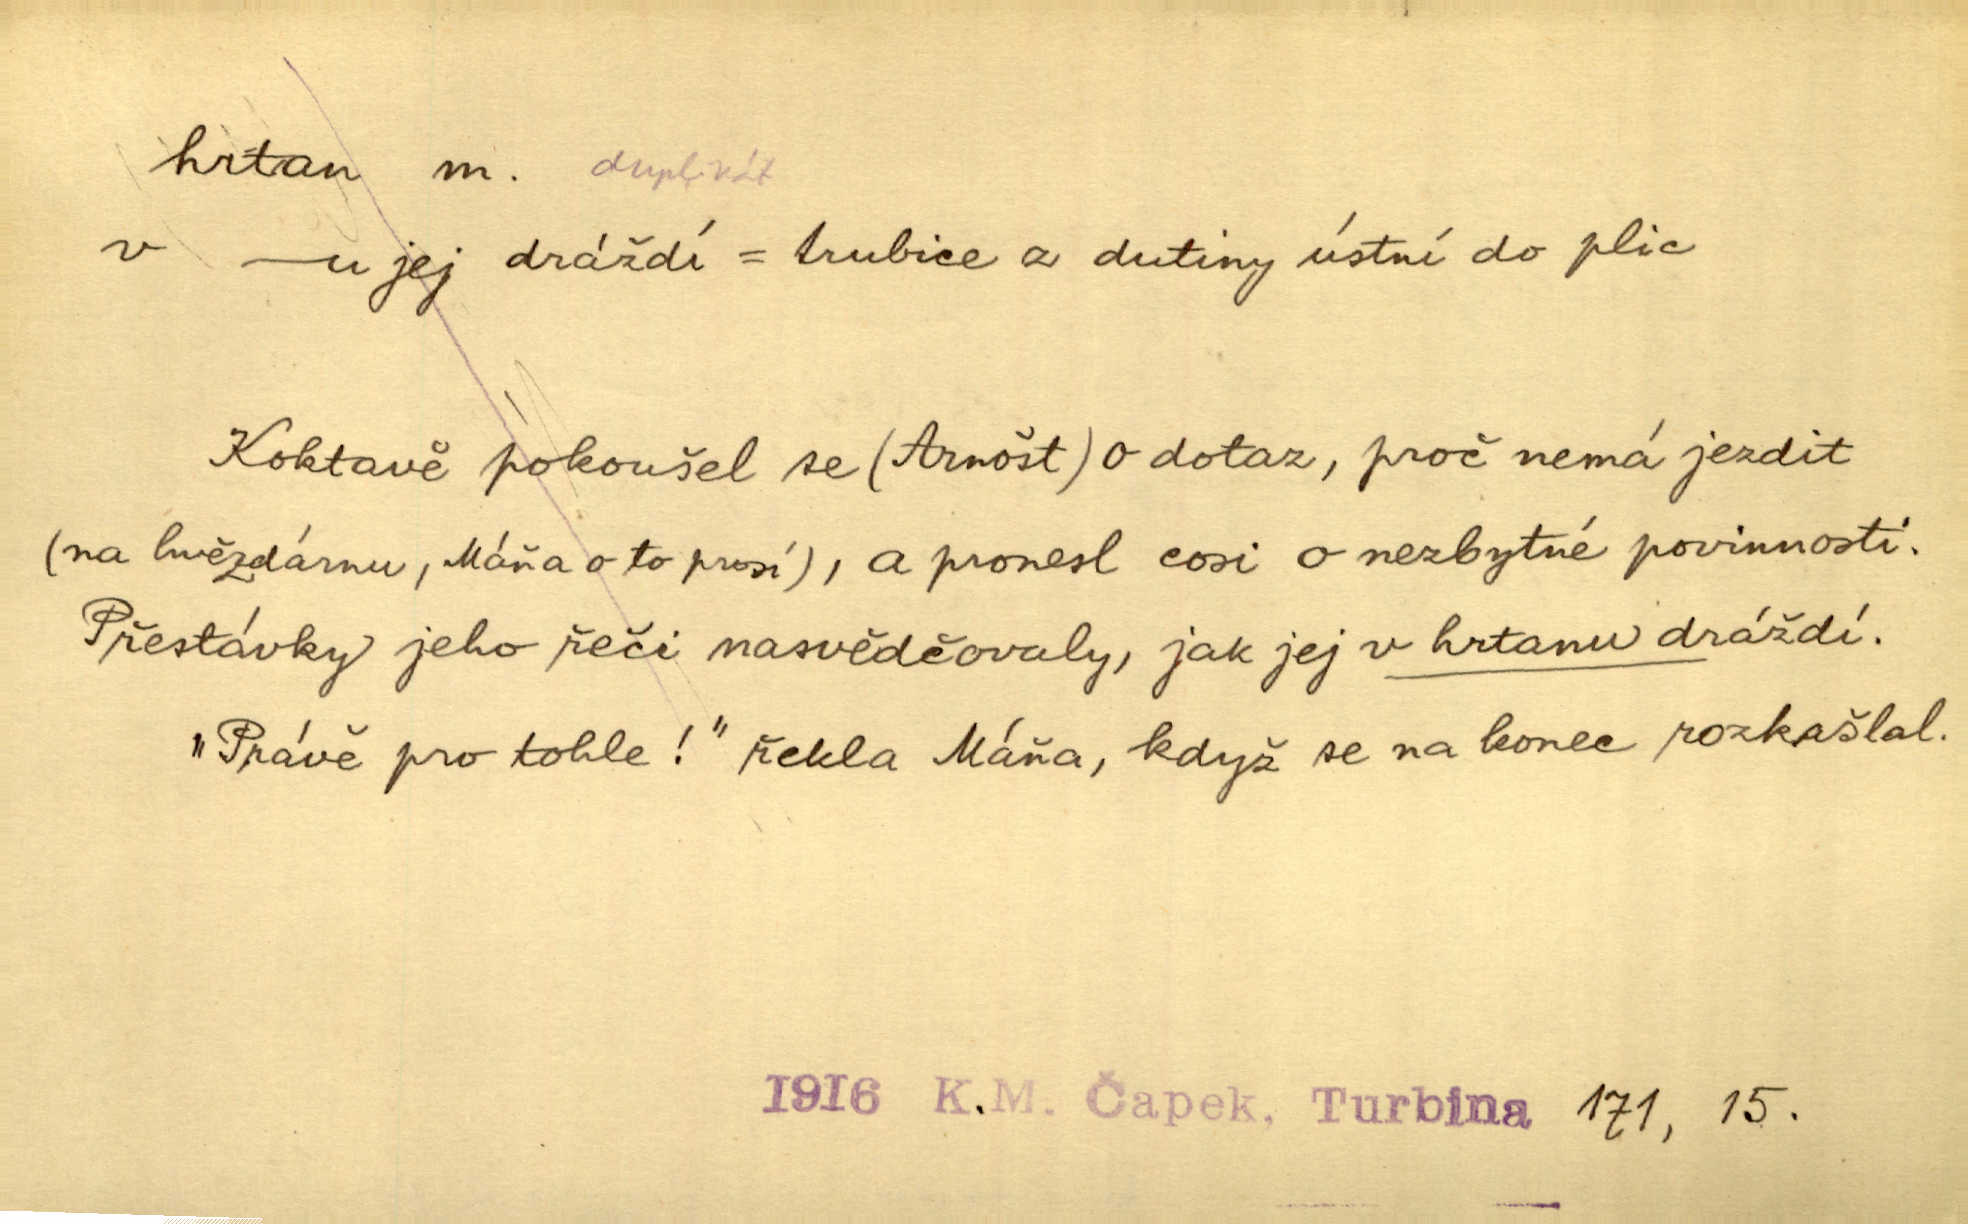 hrtan m. duplikát
v —u jej dráždí = trubice z dutiny ústní do plic
Koktavě pokoušel se (Arnošt) o dotaz, proč nemá jezdit
(na hvězdárnu, Máňa o to prosí), a pronesl cosi o nezbytné povinnosti.
Přestávky jeho řeči nasvědčovaly, jak jej v hrtanu dráždí.
"Právě pro tohle!" řekla Máňa, když se na konec rozkašlal.
1916 K.M. Čapek, Turbina 171, 15.